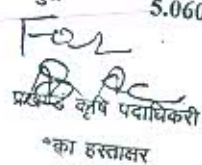 5.060
For
प्रखण्ड कृषि पदाधिकरी
का हस्ताक्षर